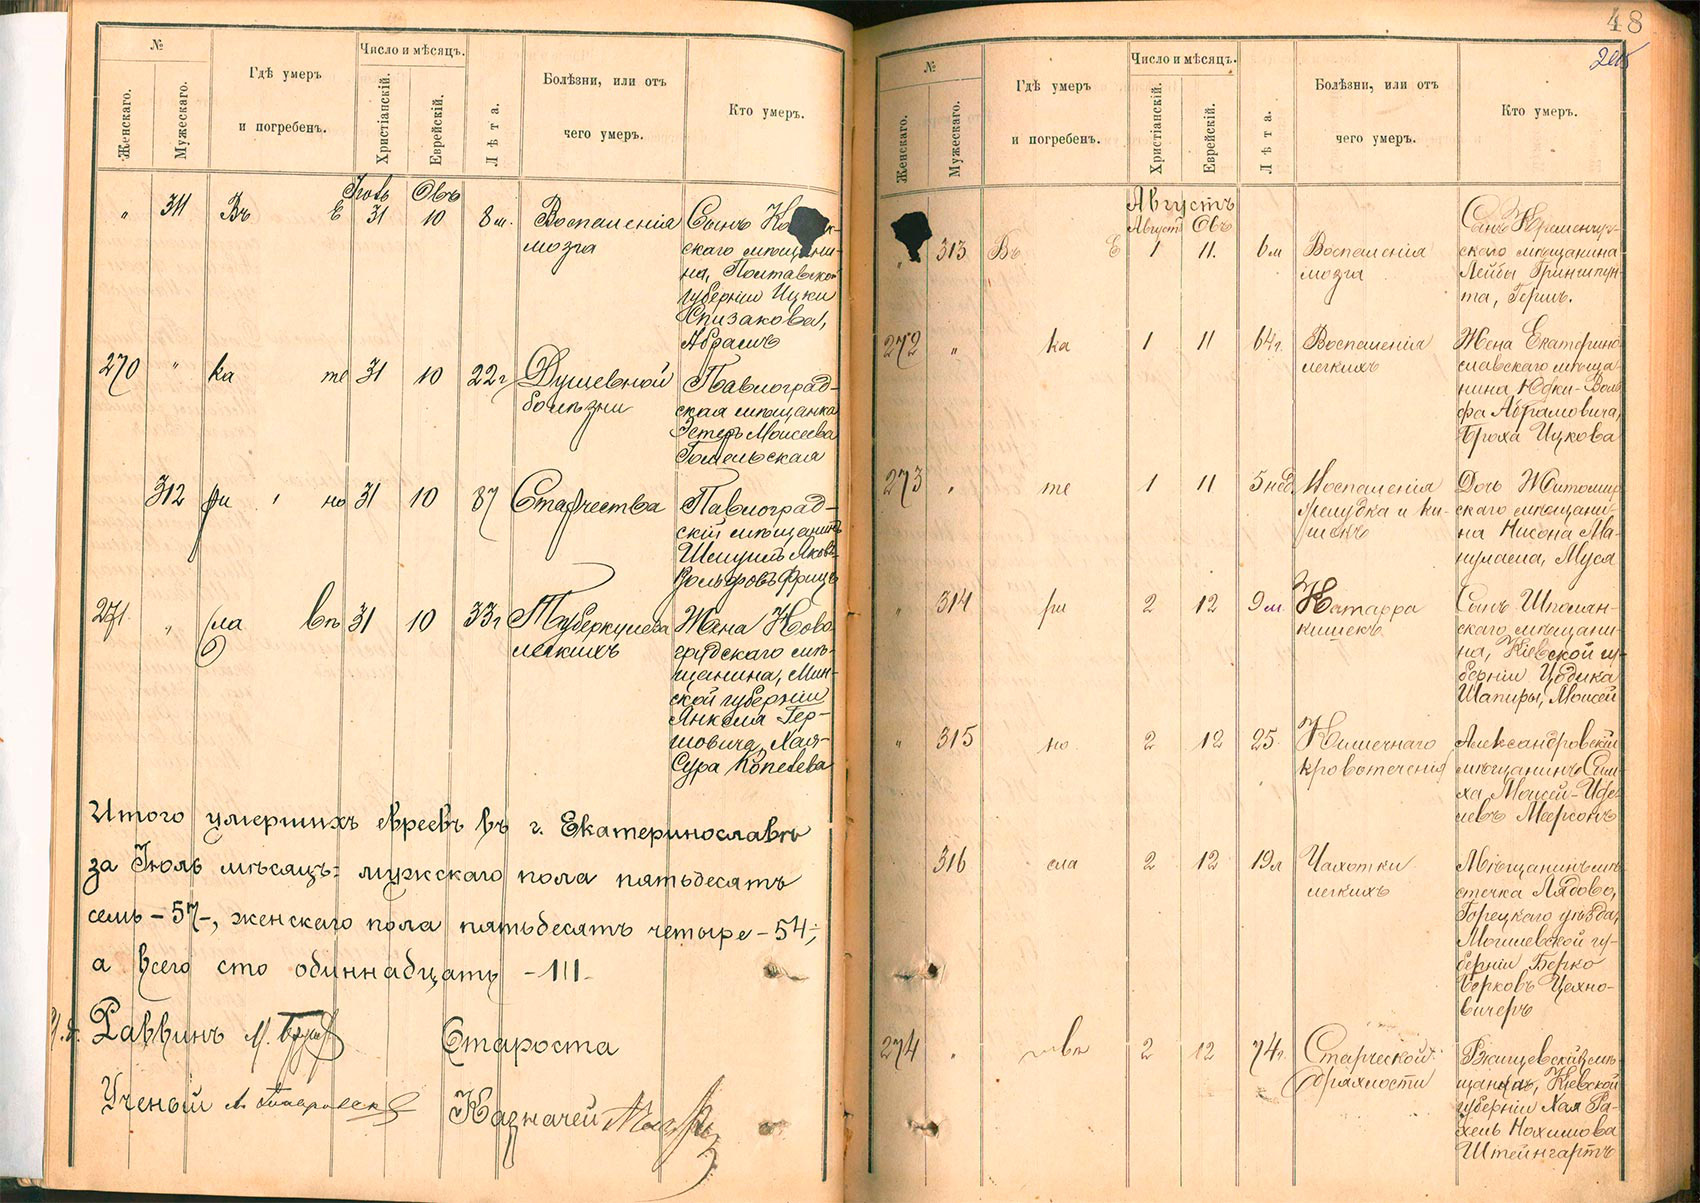 №
Женскаго.
Мужескаго.
Гдѣ умеръ
и погребенъ.
Число и мѣсяцъ.
Христіанскій.
Еврейскій.
Лѣта.
Болѣзни, или отъ
чего умеръ.
Кто умеръ.
Овъ
„ 311 Въ Е 31 10 8 м. Воспаленія
мозга
Сынъ
скаго мѣщани-
на, Полтавской
губерніи Ицки
Спизакова,
Абрамъ
270 „ ка те 31 10 22 г Душевной
болѣзни
Павлоград-
ская мѣщанка
Эстеръ Моисеева
Гомельская
312 ри но 31 10 87 Старчества
Павлоград-
скій мѣщанинъ
271 „ сла вѣ 31 10 33 г Туберкулеза
легкихъ
Жена Ново-
грудскаго мѣ-
щанина, Мин-
ской губерніи
Янкеля Гер-
шовича, Хая-
Сура Копелева
Итого умершихъ евреевъ въ г. Екатеринославѣ
за Іюль мѣсяцъ: мужскаго пола пятьдесятъ
семь – 57 –, женскаго пола пятьдесятъ четыре – 54 –,
а всего сто одиннадцать – 111 –
Раввинъ М.
Староста
Ученый
Казначей
48
№
Женскаго.
Мужескаго.
Гдѣ умеръ
и погребенъ.
Число и мѣсяцъ.
Христіанскій.
Еврейскій.
Лѣта.
Болѣзни, или отъ
чего умеръ.
Кто умеръ.
Августъ
Августъ Объ
„ 313 Въ Е 1 11. 6 м Воспаленія
мозга
Сынъ Кременчуг-
скаго мѣщанина
Лейбы Гриншпун-
та, Гершъ.
272 „ ка 1 11 64 г. Воспаленія
легкихъ
Жена Екатерино-
славскаго мѣща-
нина Юдки-Воль
фа Абрамовича,
Броха Ицкова
273 „ те 1 11 5 нед. Воспаленія
желудка и ки-
шекъ
Дочь Житомир
скаго мѣщани-
на Нисона Ма-
Муся
„ 314 ри 2 12 9 м. Катарра
кишекъ
Сынъ Шполян-
скаго мѣщани-
на, Кіевской гу-
берніи Цодика
Шапиры, Моисей
„ 315 но 2 12 25. Кишечнаго
кровотеченія
Александровскій
мѣщанинъ Сим-
ха Моисей-Иде-
левъ Меерсонъ
316 сла 2 12 19 л Чахотки
легкихъ
Мѣщанинъ мѣ-
стечка Лядово,
Горецкаго уѣзда,
Могилевской гу-
берніи Берко
Борковъ Цехно-
вичеръ
274 „ вѣ 2 12 74 г. Старческой
дряхлости
Ржищевская мѣ-
щанка, Кіевской
губерніи Хая Ра-
хель Нохимова
Штейнгартъ